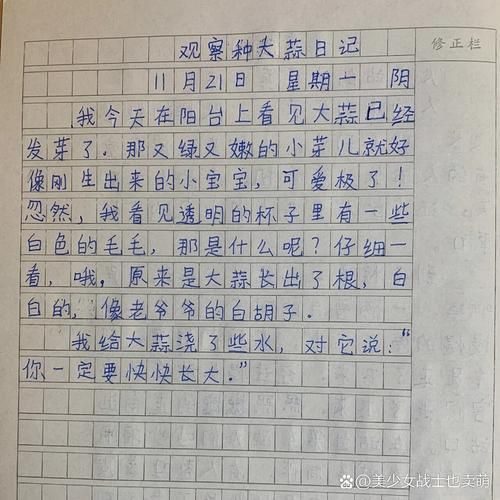 观察种大蒜日记
修正栏
11月21日 星期一 阴
我今天在阳台上看见大蒜已经
发芽了。那又绿又嫩的小芽儿就好
像刚生出来的小宝宝，可爱极了！
忽然，我看见透明的杯子里有一些
白色的毛毛，那是什么呢？仔细一
看，哦，原来是大蒜长出了根，白
白的，像老爷爷的白胡子。
我给大蒜浇了些水，对它说：“
你一定要快快长大。”
@美少女战士也卖萌